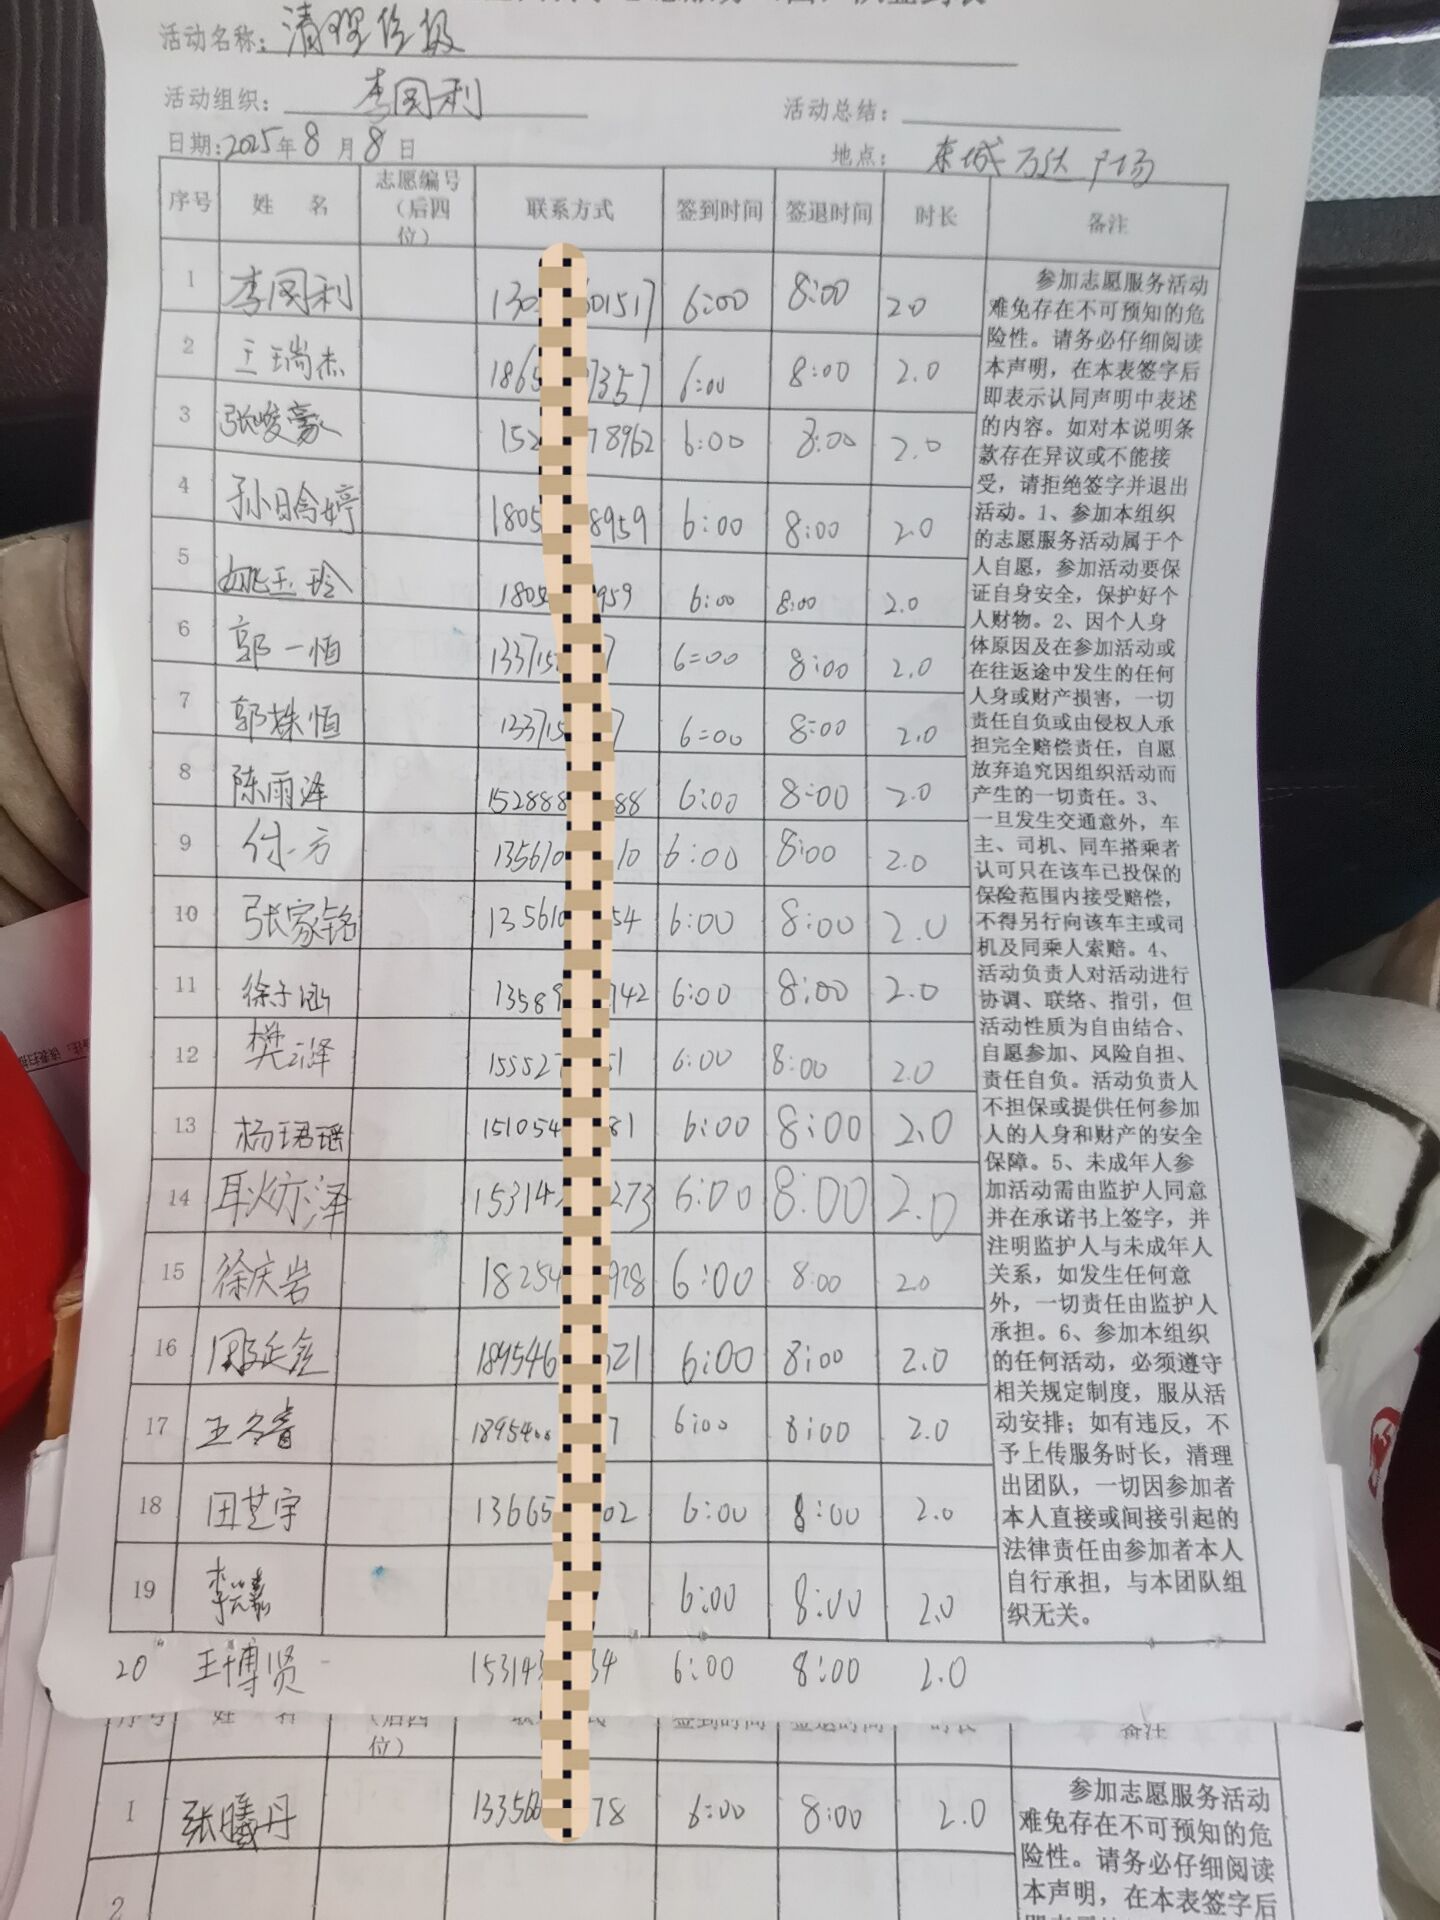 活动名称: 清理垃圾
活动组织: 李国利 活动总结:
日期:2025年8月8日 地点: 东城万达广场
序号 姓 名 志愿编号(后四位) 联系方式 签到时间 签退时间 时长 备注
1 李国利 6:00 8:00 2.0
2 王瑞杰 1865 7357 6:00 8:00 2.0
3 张峻豪 152 78962 6:00 8:00 2.0
4 孙晗婷 1805 8959 6:00 8:00 2.0
5 姚玉玲 1805 959 6:00 8:00 2.0
6 郭一恒 13371 7 6:00 8:00 2.0
7 郭姝恒 13371 7 6:00 8:00 2.0
8 陈雨泽 152888 88 6:00 8:00 2.0
9 付方 135610 10 6:00 8:00 2.0
10 张家铭 135610 54 6:00 8:00 2.0
11 徐子涵 13589 742 6:00 8:00 2.0
12 樊泽 15552 51 6:00 8:00 2.0
13 杨珺瑶 151054 81 6:00 8:00 2.0
14 耿亦泽 15314 273 6:00 8:00 2.0
15 徐庆岩 18254 928 6:00 8:00 2.0
16 189546 521 6:00 8:00 2.0
17 王名睿 189540 7 6:00 8:00 2.0
18 田芝宇 13665 02 6:00 8:00 2.0
19 6:00 8:00 2.0
20 王博贤 15314 34 6:00 8:00 2.0
参加志愿服务活动
难免存在不可预知的危
险性。请务必仔细阅读
本声明，在本表签字后
即表示认同声明中表述
的内容。如对本说明条
款存在异议或不能接
受，请拒绝签字并退出
活动。1、参加本组织
的志愿服务活动属于个
人自愿，参加活动要保
证自身安全，保护好个
人财物。2、因个人身
体原因及在参加活动或
在往返途中发生的任何
人身或财产损害，一切
责任自负或由侵权人承
担完全赔偿责任，自愿
放弃追究因组织活动而
产生的一切责任。3、
一旦发生交通意外，车
主、司机、同车搭乘者
认可只在该车已投保的
保险范围内接受赔偿，
不得另行向该车主或司
机及同乘人索赔。4、
活动负责人对活动进行
协调、联络、指引，但
活动性质为自由结合、
自愿参加、风险自担、
责任自负。活动负责人
不担保或提供任何参加
人的人身和财产的安全
保障。5、未成年人参
加活动需由监护人同意
并在承诺书上签字，并
注明监护人与未成年人
关系，如发生任何意
外，一切责任由监护人
承担。6、参加本组织
的任何活动，必须遵守
相关规定制度，服从活
动安排；如有违反，不
予上传服务时长，清理
出团队，一切因参加者
本人直接或间接引起的
法律责任由参加者本人
自行承担，与本团队组
织无关。
序号 姓 名 (后四位) 联 式 签到时间 签退时间 时长 备注
1 张曦丹 13356 78 6:00 8:00 2.0
2
参加志愿服务活动
难免存在不可预知的危
险性。请务必仔细阅读
本声明，在本表签字后